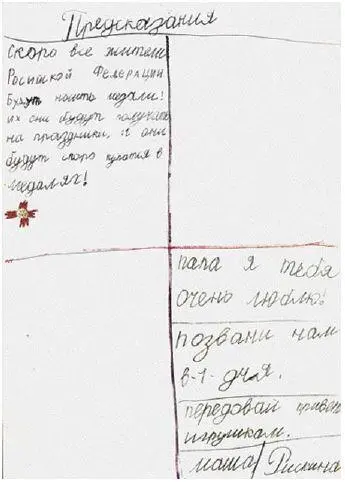 Предсказания
скоро все жители
Росийской Федерации
Будут носить медали!
их они будут получать
на праздники, и они
будут скоро купатся в
медалях!
папа я тебя
очень люблю!
позвани нам
в-1-дчя.
передовай привет
игрушкам.
маша/Рискина